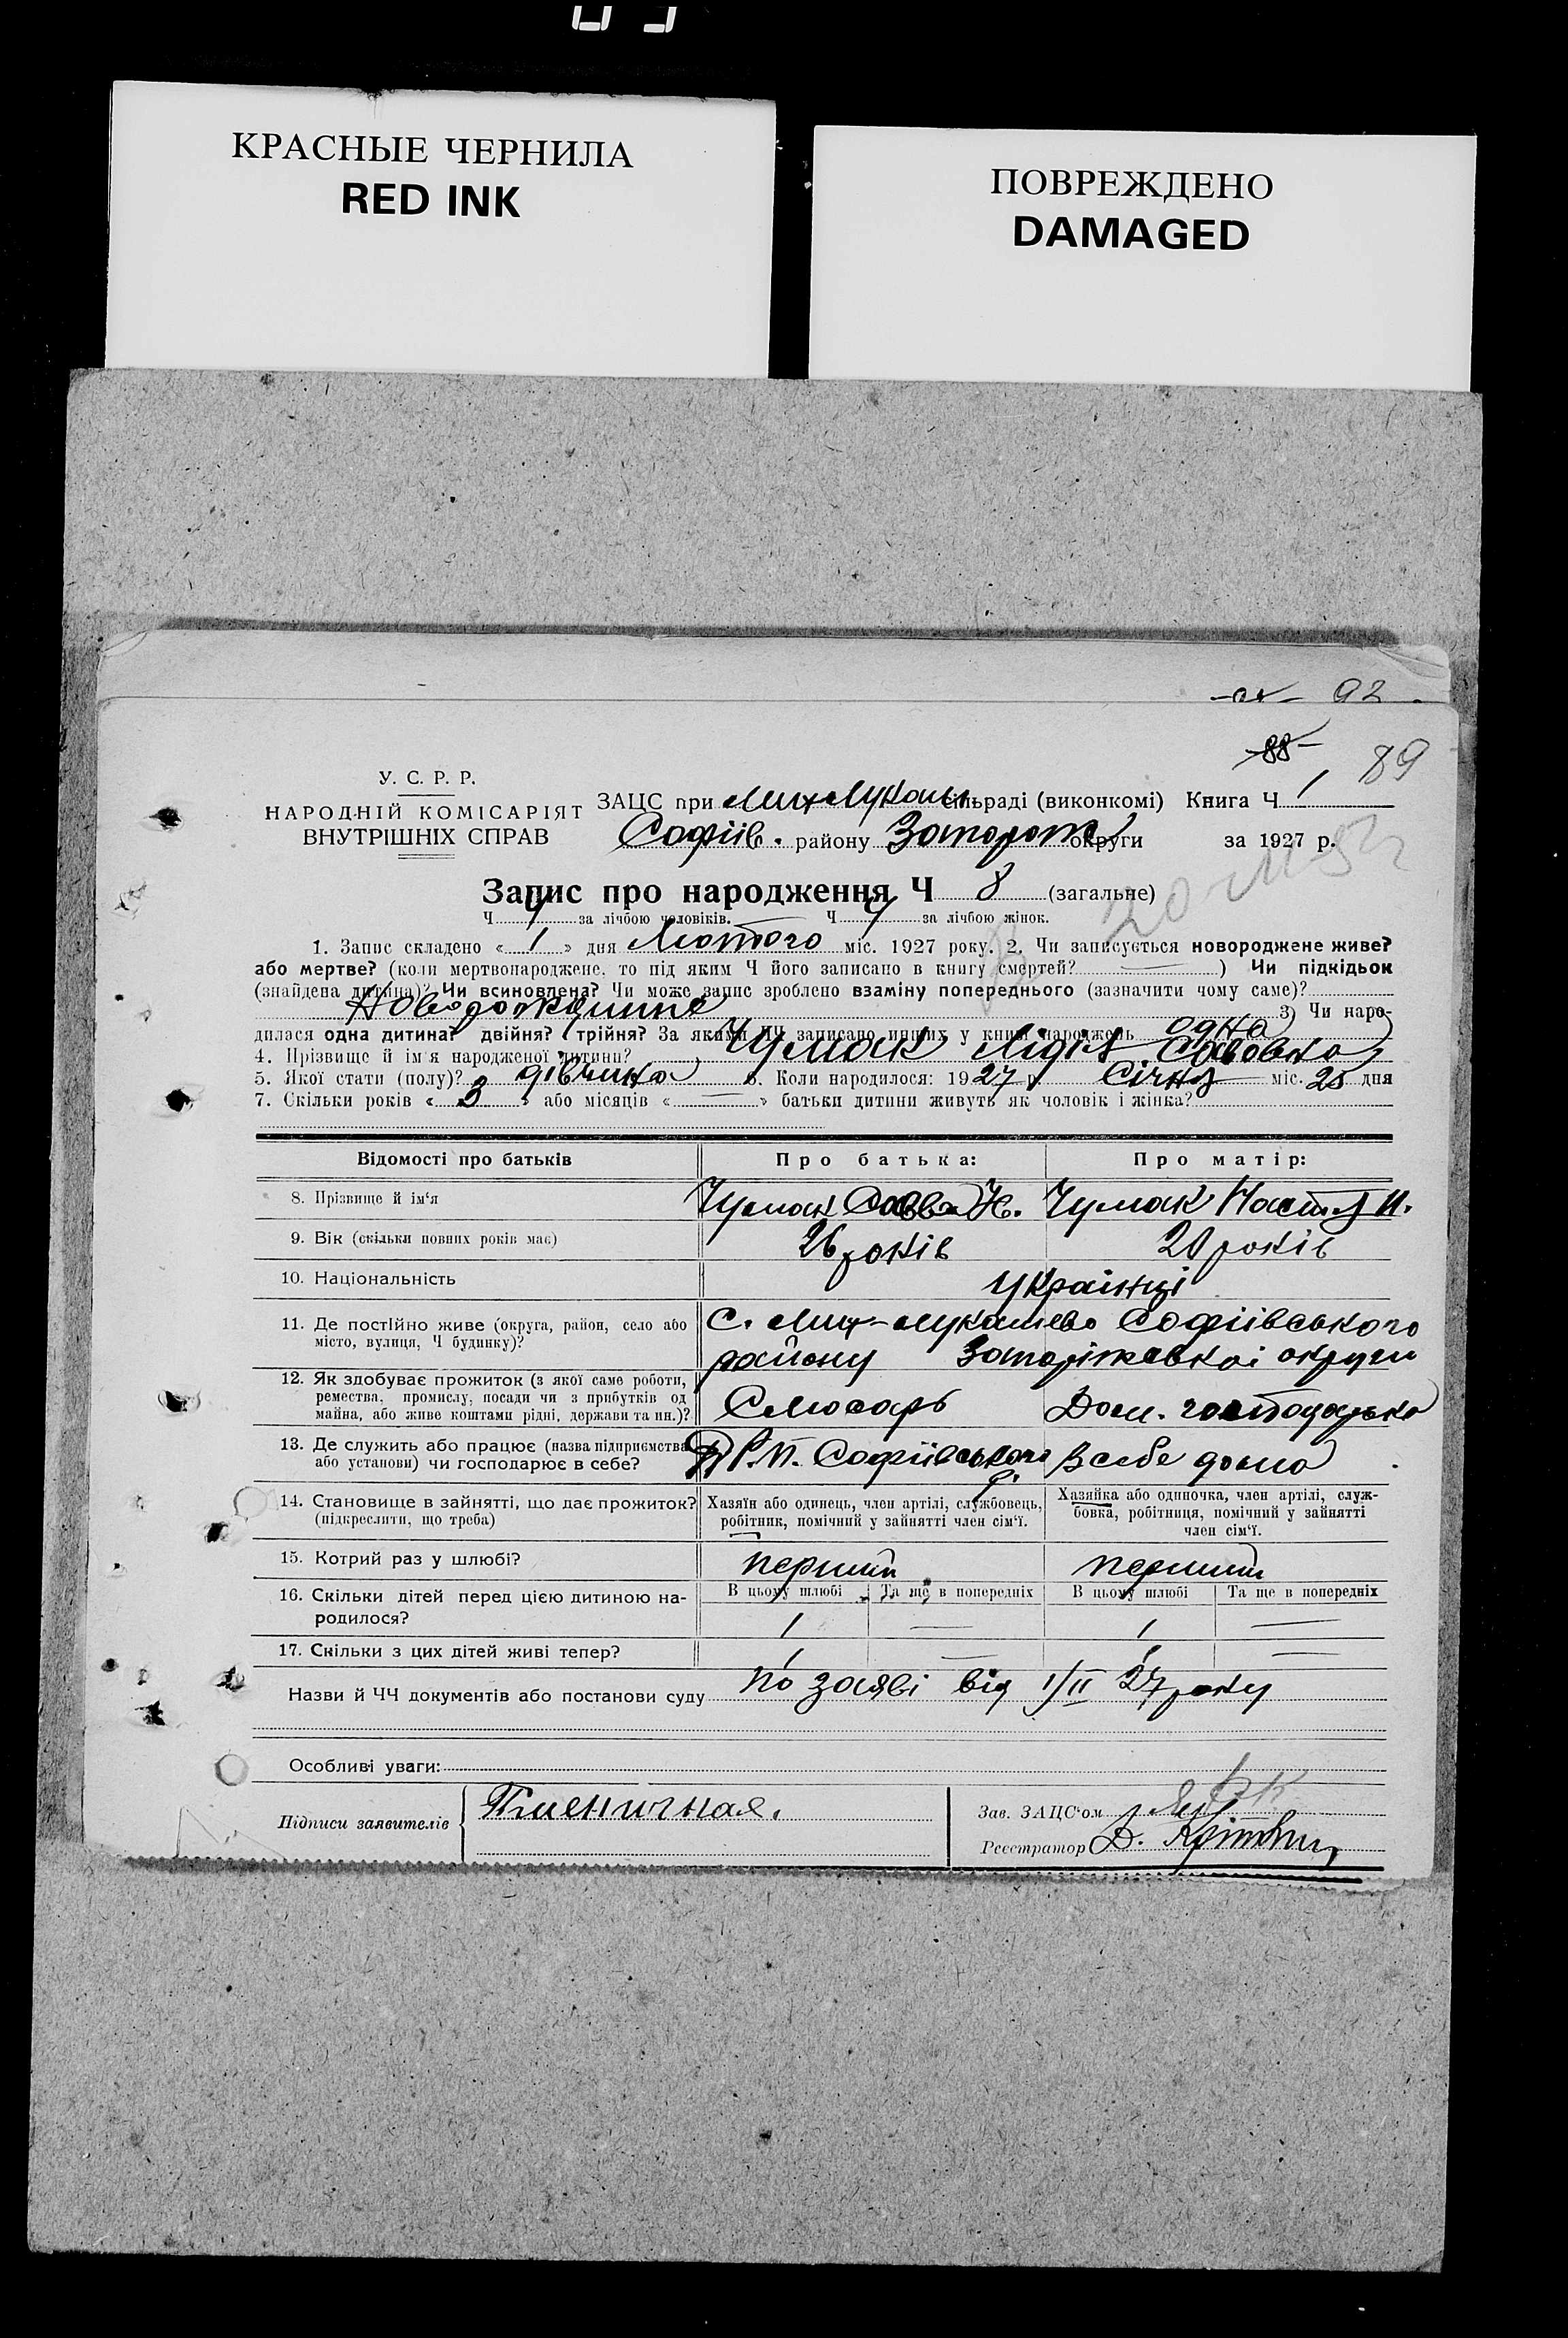 КРАСНЫЕ ЧЕРНИЛА
RED INK
ПОВРЕЖДЕНО
DAMAGED
92
88
89
У. С. Р. Р.
НАРОДНІЙ КОМІСАРІЯТ
ВНУТРІШНІХ СПРАВ
ЗАЦС при Мих-Лукаш. сільраді (виконкомі) Книга Ч 1
Софіїв. району Запорож округи за 1927 р.
Запис про народження Ч 8 (загальне)
Ч 4 за лічбою чоловіків. Ч 4 за лічбою жінок.
1. Запис складено « 1 » дня Лютого міс. 1927 року. 2. Чи записується новороджене живе?
або мертве? (коли мертвонароджене, то під яким Ч його записано в книгу смертей? — ) Чи підкідьок
(знайдена дитина)? Чи всиновлена? Чи може запис зроблено взаміну попереднього (зазначити чому саме)?
3) Чи наро-
дилася одна дитина? двійня? трійня? За якими ЧЧ записано инших у книзі народжень одна
4. Прізвище й ім'я народженої дитини? Чумак Лідія Савовна
5. Якої стати (полу)? дівчина 6. Коли народилося: 1927 р Січня міс. 25 дня
7. Скільки років « 3 » або місяців « — » батьки дитини живуть як чоловік і жінка?
Відомості про батьків Про батька: Про матір:
8. Прізвище й ім'я Чумак Савва Н. Чумак Настя И.
9. Вік (скільки повних років має) 26 років 20 років
10. Національність Українці
11. Де постійно живе (округа, район, село або місто, вулиця, Ч будинку)? С. Мих-Лукашево Софіївського
району Запоріжської округи
12. Як здобуває прожиток (з якої саме роботи, ремества, промислу, посади чи з прибутків од майна, або живе коштами рідні, держави та ин.)? Слюсарь Дом. господарька
13. Де служить або працює (назва підприємства або установи) чи господарює в себе? Р.П. Софіївського р. В себе дома
14. Становище в зайнятті, що дає прожиток? (підкреслити, що треба)
Хазяїн або одинець, член артілі, службовець, робітник, помічний у зайнятті член сім'ї.
Хазяйка або одиночка, член артілі, служ-
бовка, робітниця, помічний у зайнятті
член сім'ї.
15. Котрий раз у шлюбі? перший перший
16. Скільки дітей перед цією дитиною на-
родилося?
В цьому шлюбі Та ще в попередніх В цьому шлюбі Та ще в попередніх
1 — 1 —
17. Скільки з цих дітей живі тепер? 1 — 1 —
Назви й ЧЧ документів або постанови суду по заяві від 1/II 27 року
Особливі уваги:
Підписи заявителів Пшеничная.
Зав. ЗАЦС'ом
Реєстратор